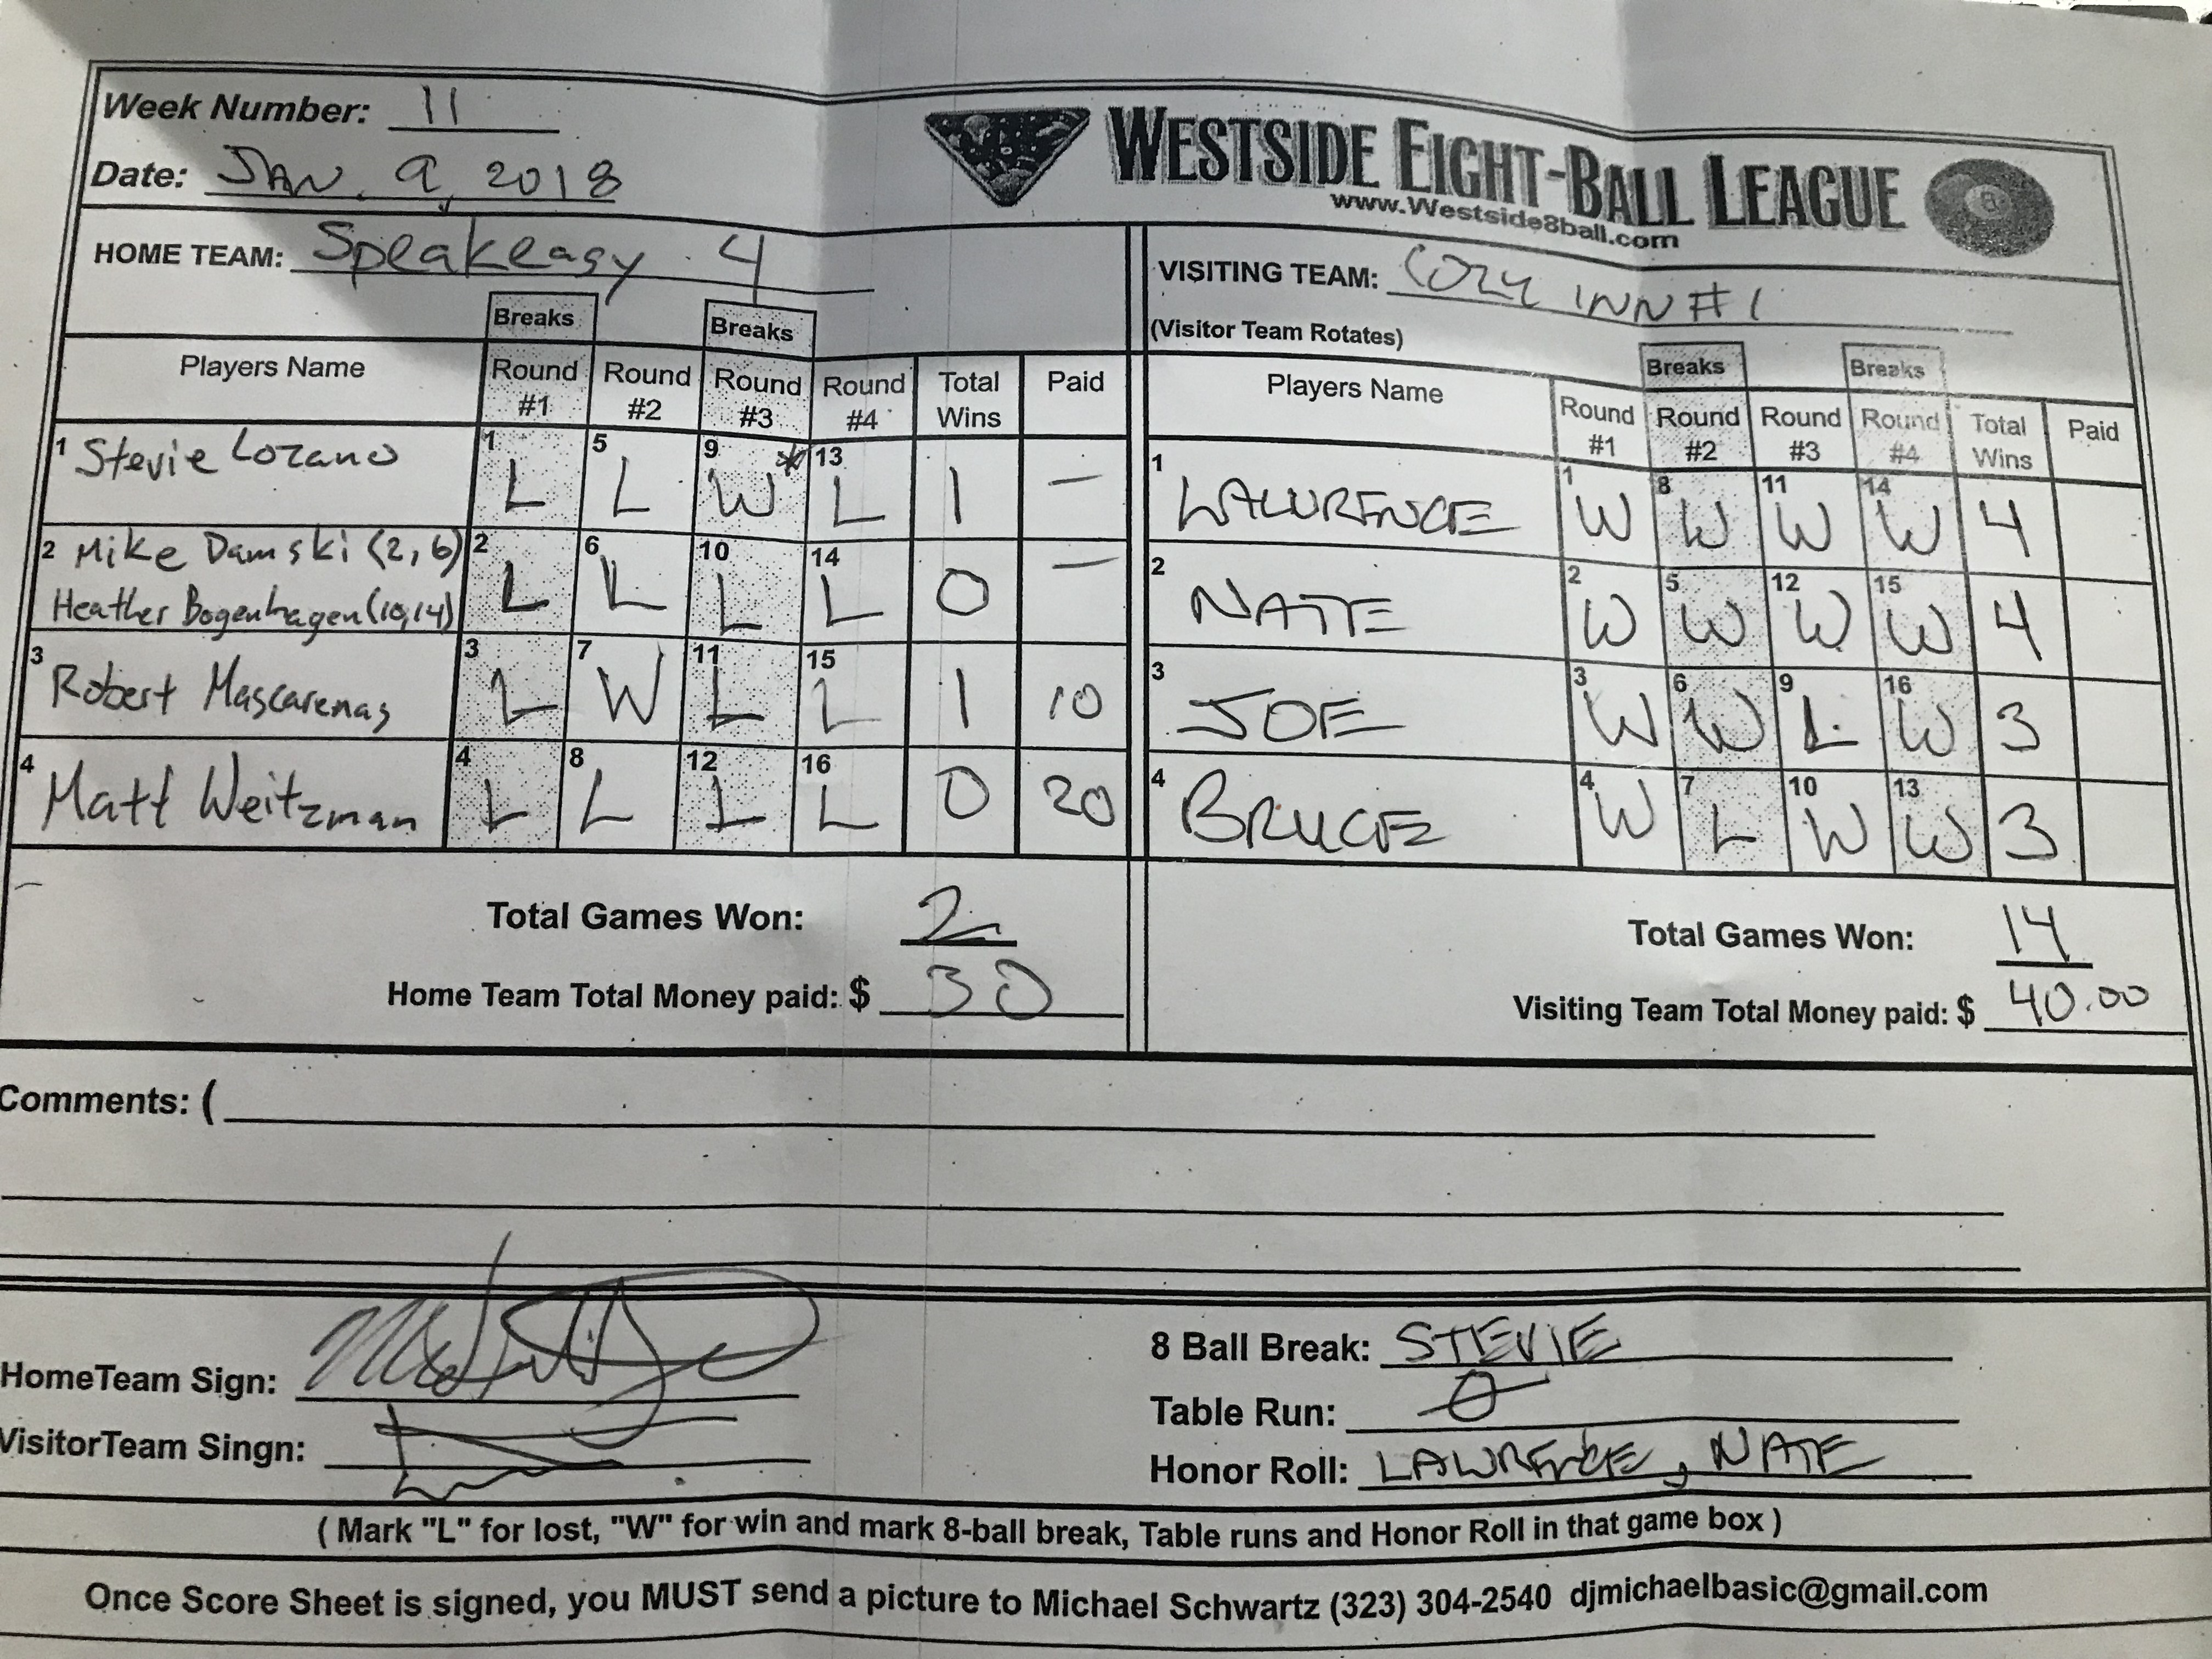 Week Number: 11
Date: JAN. 9, 2018
WESTSIDE EIGHT-BALL LEAGUE
www.Westside8ball.com
8
HOME TEAM: Speakeasy 4
VISITING TEAM: COZY INN #1
(Visitor Team Rotates)
Breaks Breaks
Players Name Round #1 Round #2 Round #3 Round #4 Total Wins Paid
1 Stevie Lozano 1 L 5 L 9 W * 13 L 1 —
2 Mike Damski (2, 6) 2 L 6 L 10 L 14 L 0 —
Heather Bogenhagen (10,14)
3 Robert Mascarenas 3 L 7 W 11 L 15 L 1 10
4 Matt Weitzman 4 L 8 L 12 L 16 L 0 20
Total Games Won: 2
Home Team Total Money paid: $ 30
Breaks Breaks
Players Name Round #1 Round #2 Round #3 Round #4 Total Wins Paid
1 LAWRENCE 1 W 8 W 11 W 14 W 4
2 NATE 2 W 5 W 12 W 15 W 4
3 JOE 3 W 6 W 9 L 16 W 3
4 BRUCE 4 W 7 L 10 W 13 W 3
Total Games Won: 14
Visiting Team Total Money paid: $ 40.00
Comments: (
HomeTeam Sign:
VisitorTeam Singn:
8 Ball Break: STEVIE
Table Run: 0
Honor Roll: LAWRENCE, NATE
( Mark "L" for lost, "W" for win and mark 8-ball break, Table runs and Honor Roll in that game box )
Once Score Sheet is signed, you MUST send a picture to Michael Schwartz (323) 304-2540 djmichaelbasic@gmail.com